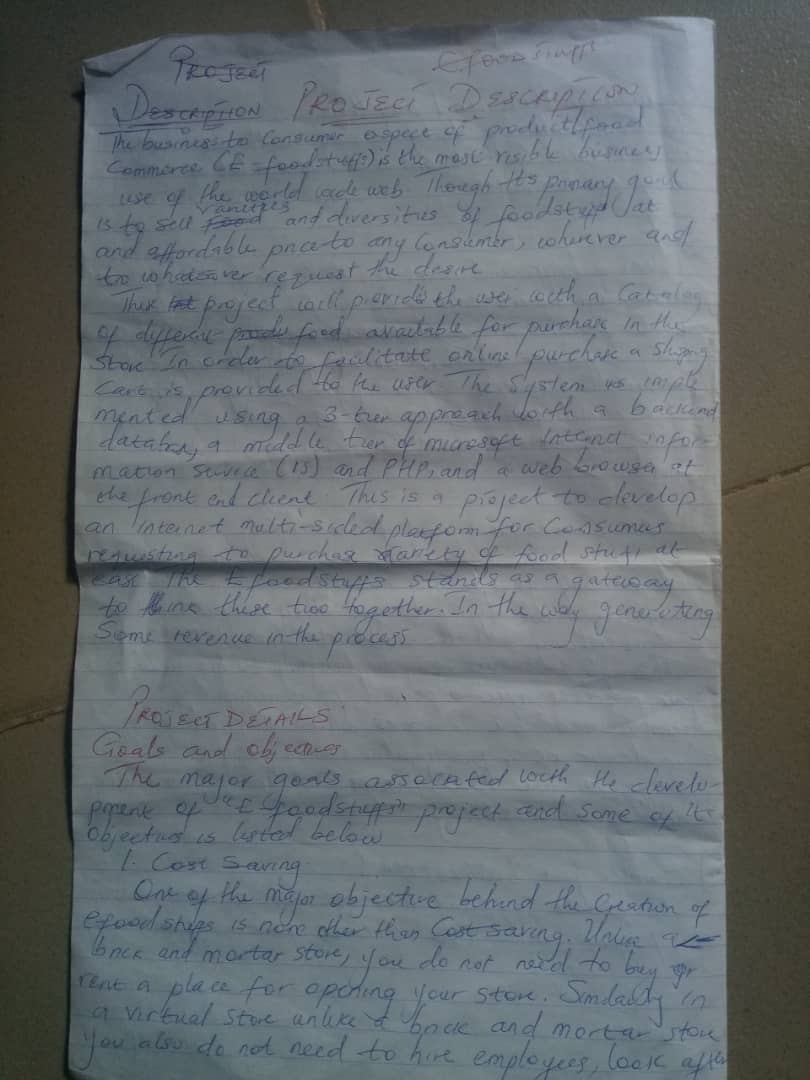 PROJECT Efoodstuffs
DESCRIPTION PROJECT DESCRIPTION
The business to Consumer aspect of product/food
Commerce (E-foodstuffs) is the most visible business
use of the world wide web. Though Its primary goal
is to sell food varieties and diversities of foodstuff at
and affordable price to any Consumer, wherever and
to whatsoever request the desire
This project will provide the user with a Catalog
of different food available for purchase in the
Store. In order to facilitate online purchase a Shopping
Cart is provided to the user. The System is imple
mented using a 3-tier approach with a backend
database, a middle tier of microsoft Internet infor-
mation Service (IS) and PHP, and a web browser at
the front end client. This is a project to develop
an internet multi-sided platform for Consumers
requesting to purchase variety of food stuffs at
ease. The Efoodstuffs stands as a gateway
to link these two together. In the way generating
Some revenue in the process
PROJECT DETAILS
Goals and objectives
The major goals associated with the develo-
pment of "E foodstuffs" project and some of its
Objectives is listed below
1. Cost Saving
One of the major objective behind the Creation of
Efoodstuffs is none other than Cost saving. Unlike a
brick and mortar store, you do not need to buy or
rent a place for opening your store. Similarly in
a virtual store unlike a brick and mortar store
you also do not need to hire employees, look after